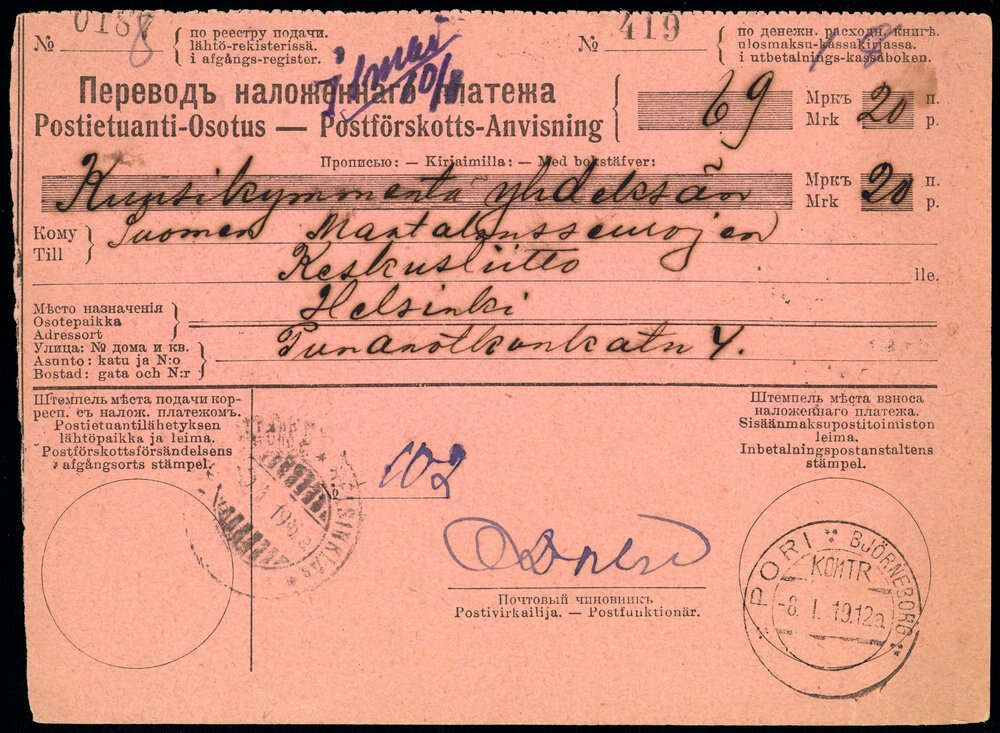 0187 8
№
по реестру подачи.
lähtö-rekisterissä.
i afgångs-register.
419
№
по денежн. расходн. книгѣ.
ulosmaksu-kassakirjassa.
i utbetalnings-kassaboken.
Переводъ наложеннаго платежа
Postietuanti-Osotus — Postförskotts-Anvisning
69 Мркъ Mrk 20 п. p.
Прописью: — Kirjaimilla: — Med bokstäfver:
Kuusikymmentä yhdeksän Мркъ Mrk 20 п. p.
Кому
Till
Suomen Maatalousseurojen
Keskusliitto lle.
Мѣсто назначенія
Osotepaikka
Adressort
Helsinki
Улица: № дома и кв.
Asunto: katu ja N:o
Bostad: gata och N:r
Punanotkonkatu 4.
Штемпель мѣста подачи кор-
респ. съ налож. платежомъ.
Postietuantilähetyksen
lähtöpaikka ja leima.
Postförskottsförsändelsens
afgångsorts stämpel.
Штемпель мѣста взноса
наложеннаго платежа.
Sisäänmaksupostitoimiston
leima.
Inbetalningspostanstaltens
stämpel.
№ 102
Почтовый чиновникъ
Postivirkailija. — Postfunktionär.
PORI BJÖRNEBORG
КОНТR
-8. I. 19.12a.